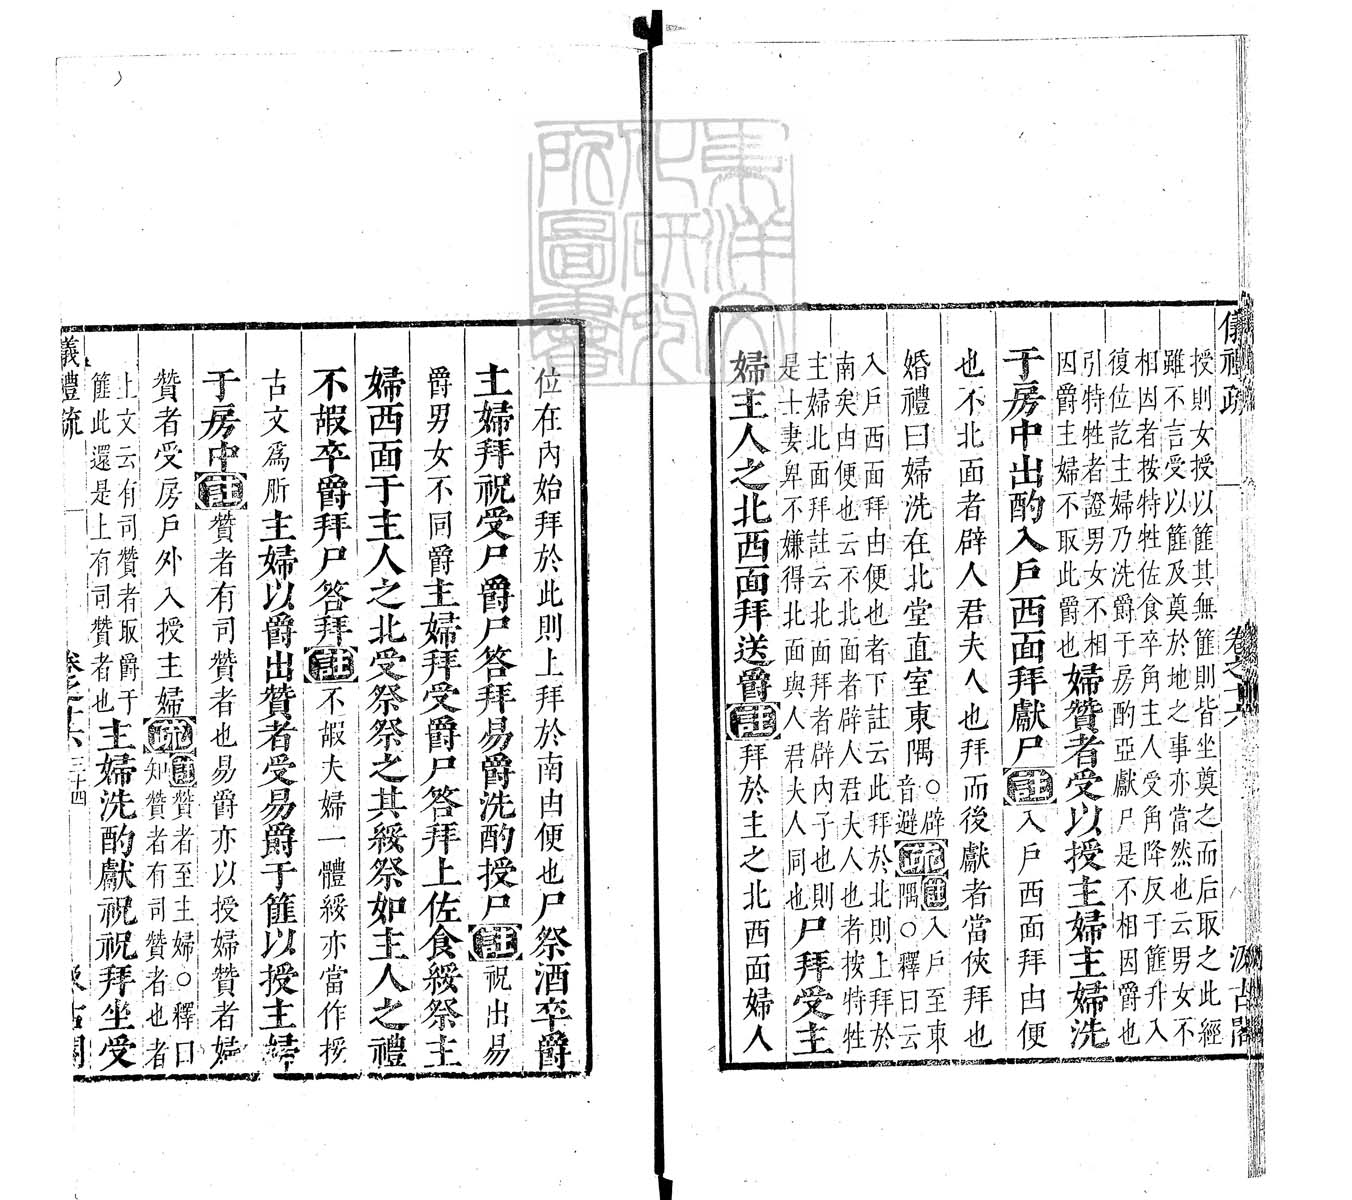 儀禮疏 卷之十六 汲古閣
授則女授以篚其無篚則皆坐奠之而后取之此經
雖不言受以篚及奠於地之事亦當然也云男女不
相因者按特牲佐食卒角主人受角降反于篚升入
復位訖主婦乃洗爵于房酌亞獻尸是不相因爵也
引特牲者證男女不相
因爵主婦不取此爵也
婦贊者受以授主婦主婦洗
于房中出酌入戶西面拜獻尸註入戶西面拜由便
也不北面者辟人君夫人也拜而後獻者當俠拜也
婚禮曰婦洗在北堂直室東隅○辟
音避
疏註入戶至東
隅○釋曰云
入戶西面拜由便也者下註云此拜於北則上拜於
南矣由便也云不北面者辟人君夫人也者按特牲
主婦北面拜註云北面拜者辟內子也則
是士妻卑不嫌得北面與人君夫人同也
尸拜受主
婦主人之北西面拜送爵註拜於主之北西面婦人
位在內始拜於此則上拜於南由便也尸祭酒卒爵
主婦拜祝受尸爵尸答拜易爵洗酌授尸註祝出易
爵男女不同爵主婦拜受爵尸答拜上佐食綏祭主
婦西面于主人之北受祭祭之其綏祭如主人之禮
不嘏卒爵拜尸答拜註不嘏夫婦一體綏亦當作挼
古文為肵主婦以爵出贊者受易爵于篚以授主婦
于房中註贊者有司贊者也易爵亦以授婦贊者婦
贊者受房戶外入授主婦疏註贊者至主婦○釋曰
知贊者有司贊者也者
上文云有司贊者取爵于
篚此還是上有司贊者也
主婦洗酌獻祝祝拜坐受
儀禮疏 卷之十六 三十四 汲古閣